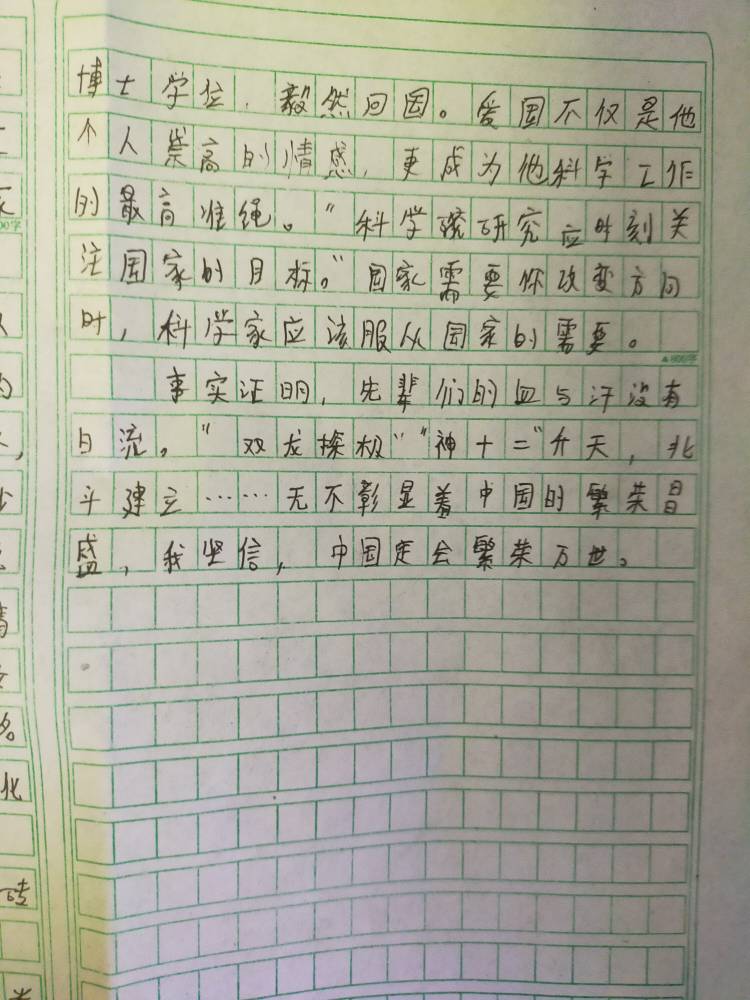 博士学位，毅然回国。爱国不仅是他
个人崇高的情感，更成为他科学工作
的最高准绳。“科学研究应时刻关
注国家的目标。”国家需要你改变方向
时，科学家应该服从国家的需要。
▲800字
事实证明，先辈们的血与汗没有
白流。“双龙探极”“神十二”升天，北
斗建立……无不彰显着中国的繁荣昌
盛，我坚信，中国定会繁荣万世。